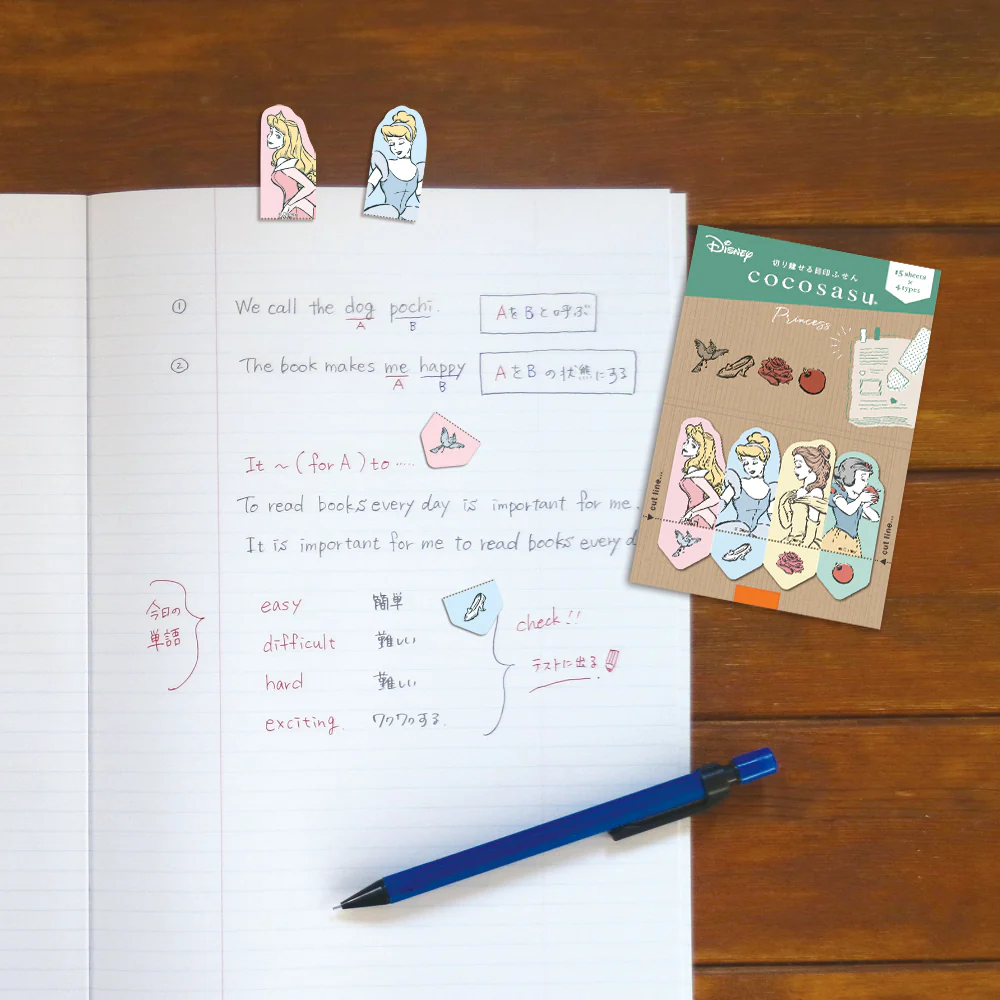 ① We call the dog pochi. AをBと呼ぶ
A B
② The book makes me happy AをBの状態にする
A B
It ~ (for A) to ‥‥
To read books every day is important for me.
It is important for me to read books every d
今日の
単語
easy 簡単
difficult 難しい
hard 難しい
exciting. ワクワクする.
check!!
テストに出る
Disney
切り離せる目印ふせん
cocosasu
15 sheets
×
4 types
Princess
cut line...
cut line...